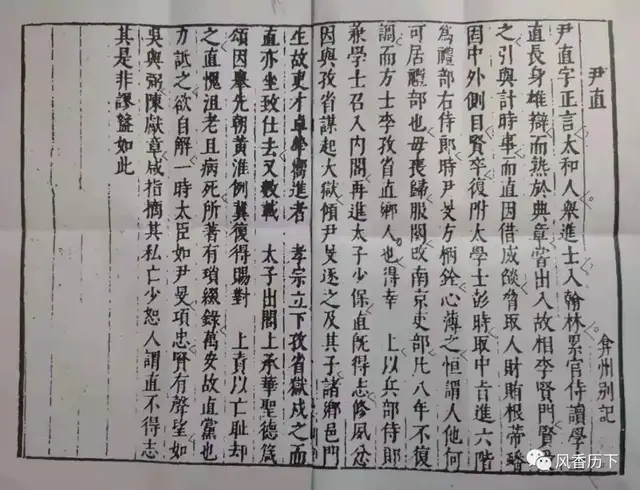 尹直 弇州别記
尹直字正言太和人舉進士入翰林累官侍讀學
直長身雄辯而熟於典章嘗出入故相李賢門賢
之引與計時事而直因借成燄脅取人財賄根蒂蟠
固中外側目賢卒復附大學士彭時取中旨進六階
爲禮部右侍郎時尹旻方柄銓心薄之恒謂人他何
可居禮部也毋喪歸服闋改南京吏部凡八年不復
調而方士李孜省直鄉人也得幸 上以兵部侍郎
兼學士召入內閣再進太子少保直既得志修夙忿
因與孜省謀起大獄傾尹旻逐之及其子諸鄉邑門
生故吏才卓學嚮進者 孝宗立下孜省獄戍之而
直亦坐致仕去又數載 太子出閣上承華聖德箴
頌因舉先朝黃淮例冀復得賜對 上責以亡恥却
之直愧沮老且病死所著有瑣綴錄萬安故直黨也
力詆之欲自解一時太臣如尹旻項忠賢有聲望如
吳與弼陳獻章咸指摘其私亡少恕人謂直不得志
其是非謬盭如此
风香历下